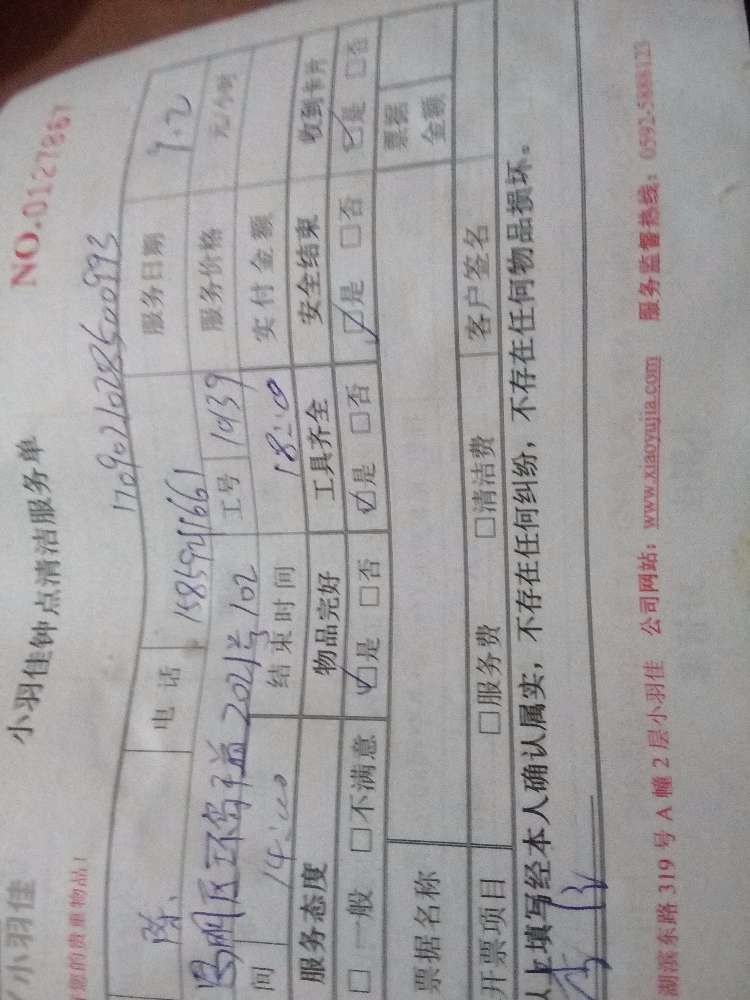 小羽佳
小羽佳钟点清洁服务单
NO.0127867
您的贵重物品！
170902102850099 3
陈 电 话 服务日期 9.2
思明区环岛 2021号102 工号 1039 服务价格 元/小时
间 14:00 结束时间 18:00 实付金额
服务态度 物品完好 工具齐全 安全结束 收到卡片
□一般 □不满意 ☑是 □否 ☑是 □否 ☑是 □否 ☑是 □否
票据名称 票据金额
开票项目 □服务费 □清洁费 客户签名
以上填写经本人确认属实，不存在任何纠纷，不存在任何物品损坏。
湖滨东路 319 号 A 幢 2 层小羽佳 公司网站：www.xiaoyujia.com 服务监督热线：0592-5888123